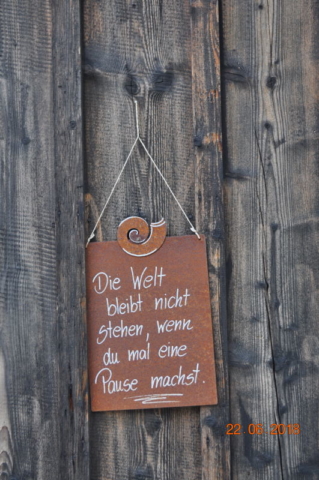 Die Welt
bleibt nicht
stehen, wenn
du mal eine
Pause machst.